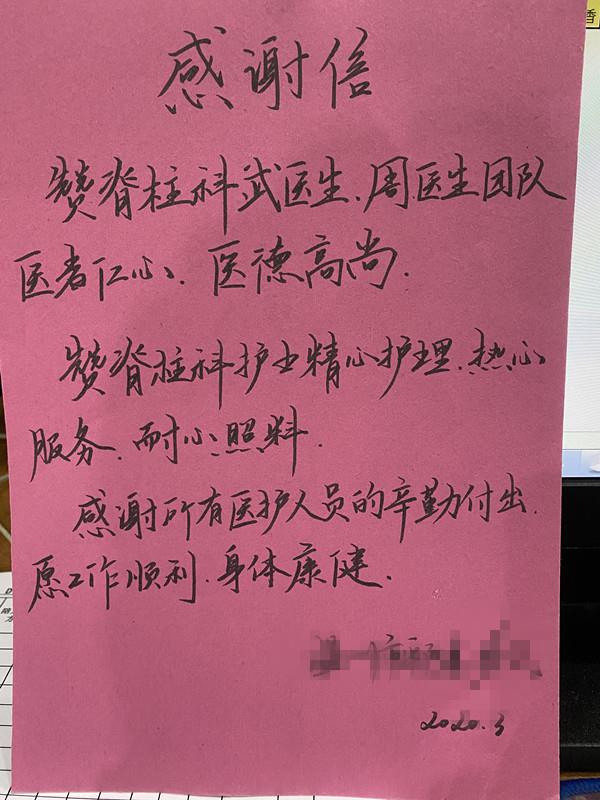 感谢信
赞脊柱科武医生、周医生团队
医者仁心、医德高尚.
赞脊柱科护士精心护理、热心
服务、耐心照料.
感谢所有医护人员的辛勤付出.
愿工作顺利、身体康健.
2020.3
香